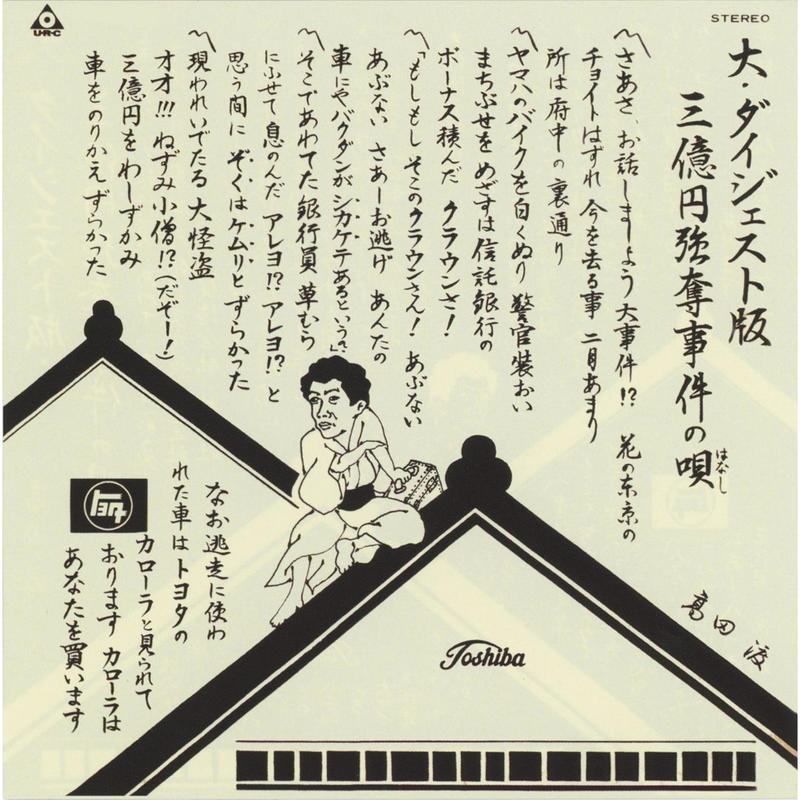 U・R・C
STEREO
大・ダイジェスト版
三億円強奪事件の唄
はなし
高田渡
〽さあさ、お話しましょう 大事件!? 花の東京の
チョイトはずれ 今を去る事 二月あまり
所は府中の裏通り
〽ヤマハのバイクを白くぬり 警官装おい
まちぶせを めざすは信託銀行の
ボーナス積んだ クラウンさ!
〽「もしもし そこのクラウンさん! あぶない
あぶない さあーお逃げ あんたの
車にやバクダンが シカケテあるという」
〽そこであわてた銀行員 草むら
にふせて息のんだ アレヨ!? アレヨ!? と
思う間に ぞくはケムリと ずらかった
〽現われいでたる 大怪盗
オオ!!! ねずみ小僧!? (だぞー!)
三億円を わしずかみ
車をのりかえ ずらかった
なお逃走に使わ
れた車は トヨタの
カローラと見られて
おります カローラは
あなたを買います
トヨタ
Toshiba